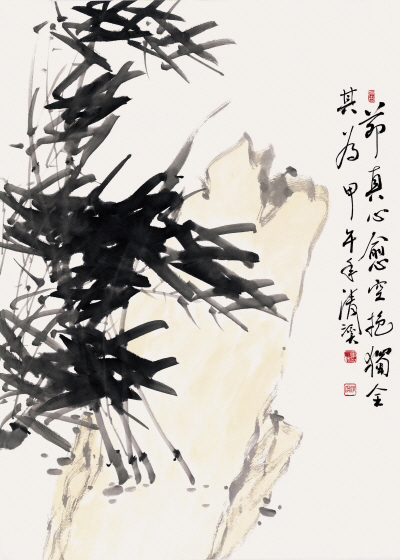 節真心愈空抱獨全
其為甲午年清溪